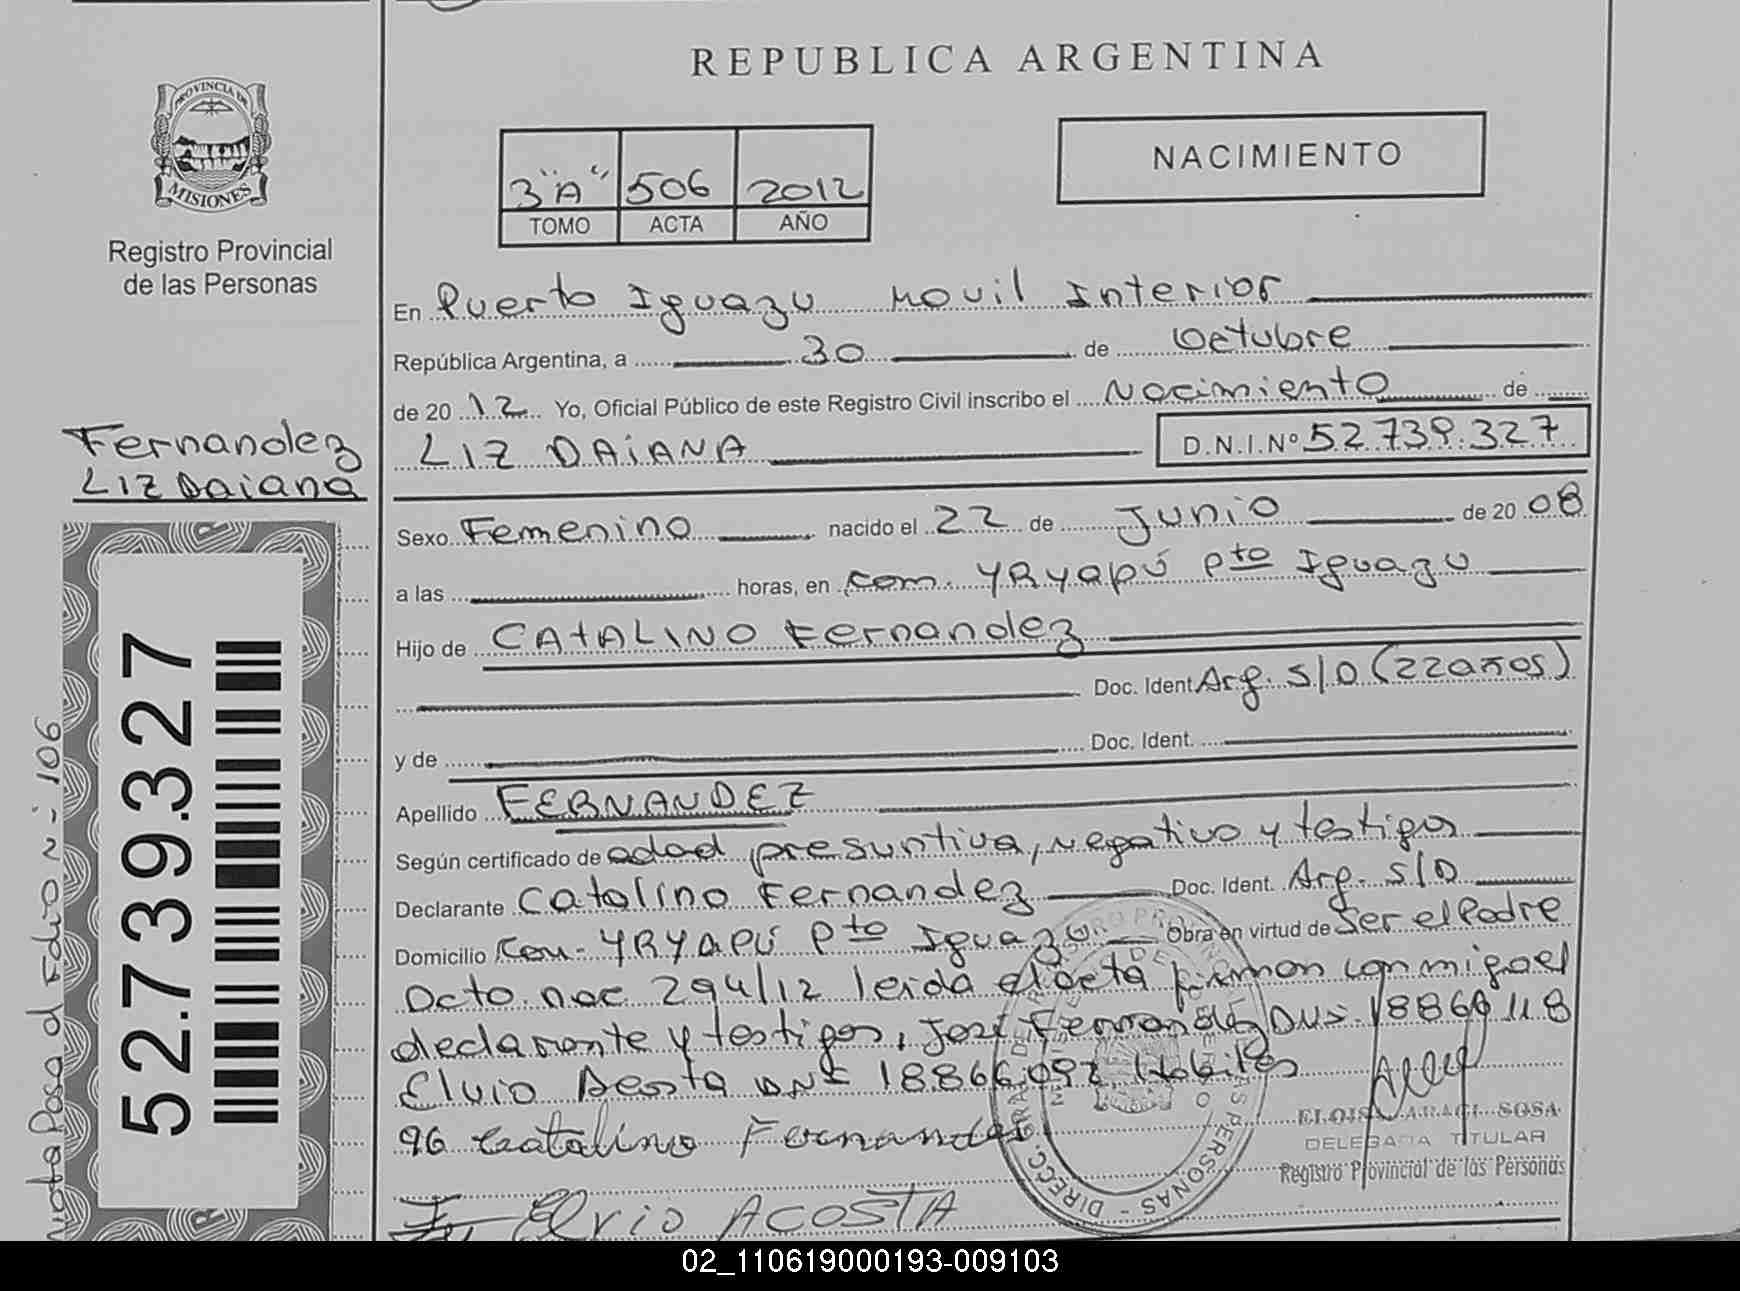 REPUBLICA ARGENTINA
PROVINCIA DE
MISIONES
Registro Provincial
de las Personas
NACIMIENTO
3 "A" 506 2012
TOMO ACTA AÑO
En Puerto Iguazu Movil Interior
República Argentina, a 30 de Octubre
de 20 12 Yo, Oficial Público de este Registro Civil inscribo el Nacimiento de
LIZ DAIANA D.N.I.Nº 52.739.327
Fernandez
LIZ Daiana
Sexo Femenino nacido el 22 de Junio de 20 08
a las horas, en Com. YRyapú Pto Iguazu
Hijo de CATALINO Fernandez
Doc. Ident. Arg. S/D (22 años)
y de Doc. Ident.
Apellido FERNANDEZ
Según certificado de edad presuntiva, negativo y testigos
Declarante Catalino Fernandez Doc. Ident. Arg. S/D
Domicilio Com. YRYAPÚ Pto Iguazu Obra en virtud de Ser el Padre
Dcto. nac 294/12 leida el acta firman conmigo el
declarante y testigos, José Fernandez 118
Elvio Acosta Habiles
96 Catalino Fernandez
Elvio ACOSTA
ELOISA SOSA
DELEGADA TITULAR
Registro Provincial de las Personas
52.739.327
Nota Pasa al Folio Nº 106
02_110619000193-009103